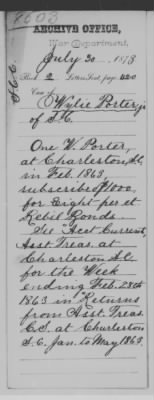 8003
ARCHIVE OFFICE,
War Department,
July 30 1873
Book 2 Letters Sent, page 620
Case of
Wylie Porter, jr
of S.C.
One W. Porter,
at Charleston, S.C.
in Feb. 1863,
subscribed $1000.
for Eight per ct
Rebel Bonds.
See "Acct Current,
Asst Treas. at
Charleston S.C.
for the Week
ending Feb. 28th
1863 in "Returns
from Asst. Treas.
C.S. at Charleston
S.C. Jan. to May 1863.